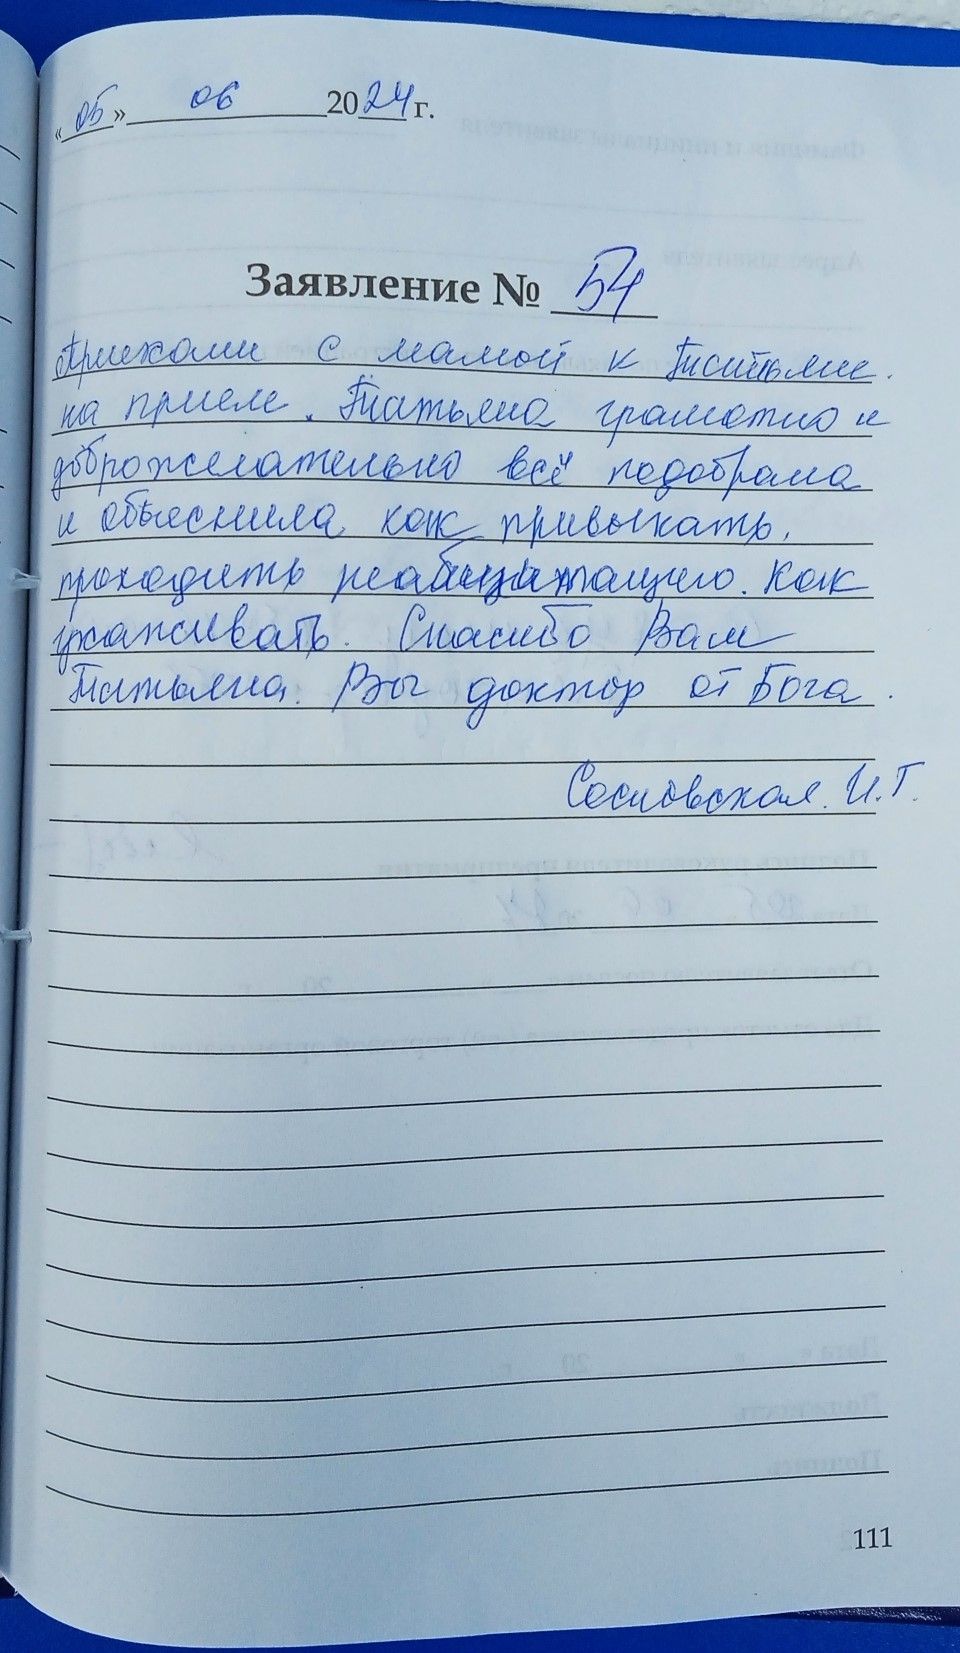 «05» 06 2024 г.
Заявление № 54
Приехали с мамой к Татьяне.
на прием. Татьяна грамотно и
доброжелательно всё подобрала
и объяснила как привыкать,
проходить реабилитацию. Как
ухаживать. Спасибо Вам
Татьяна. Вы доктор от Бога.
Сосновская. И.Г.
111